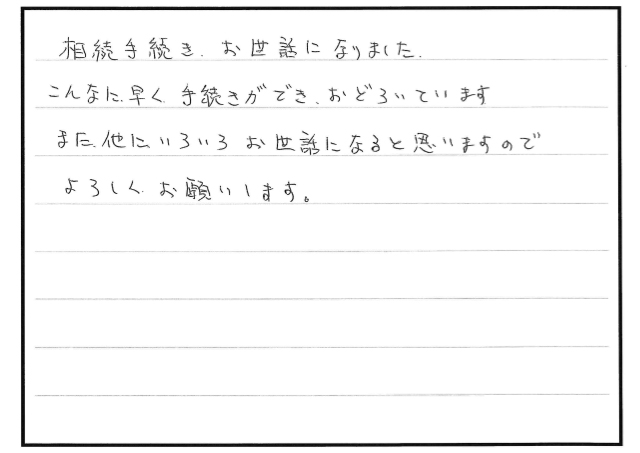 相続手続き、お世話になりました.
こんなに早く手続きができ、おどろいています
また他にいろいろお世話になると思いますので
よろしくお願いします。